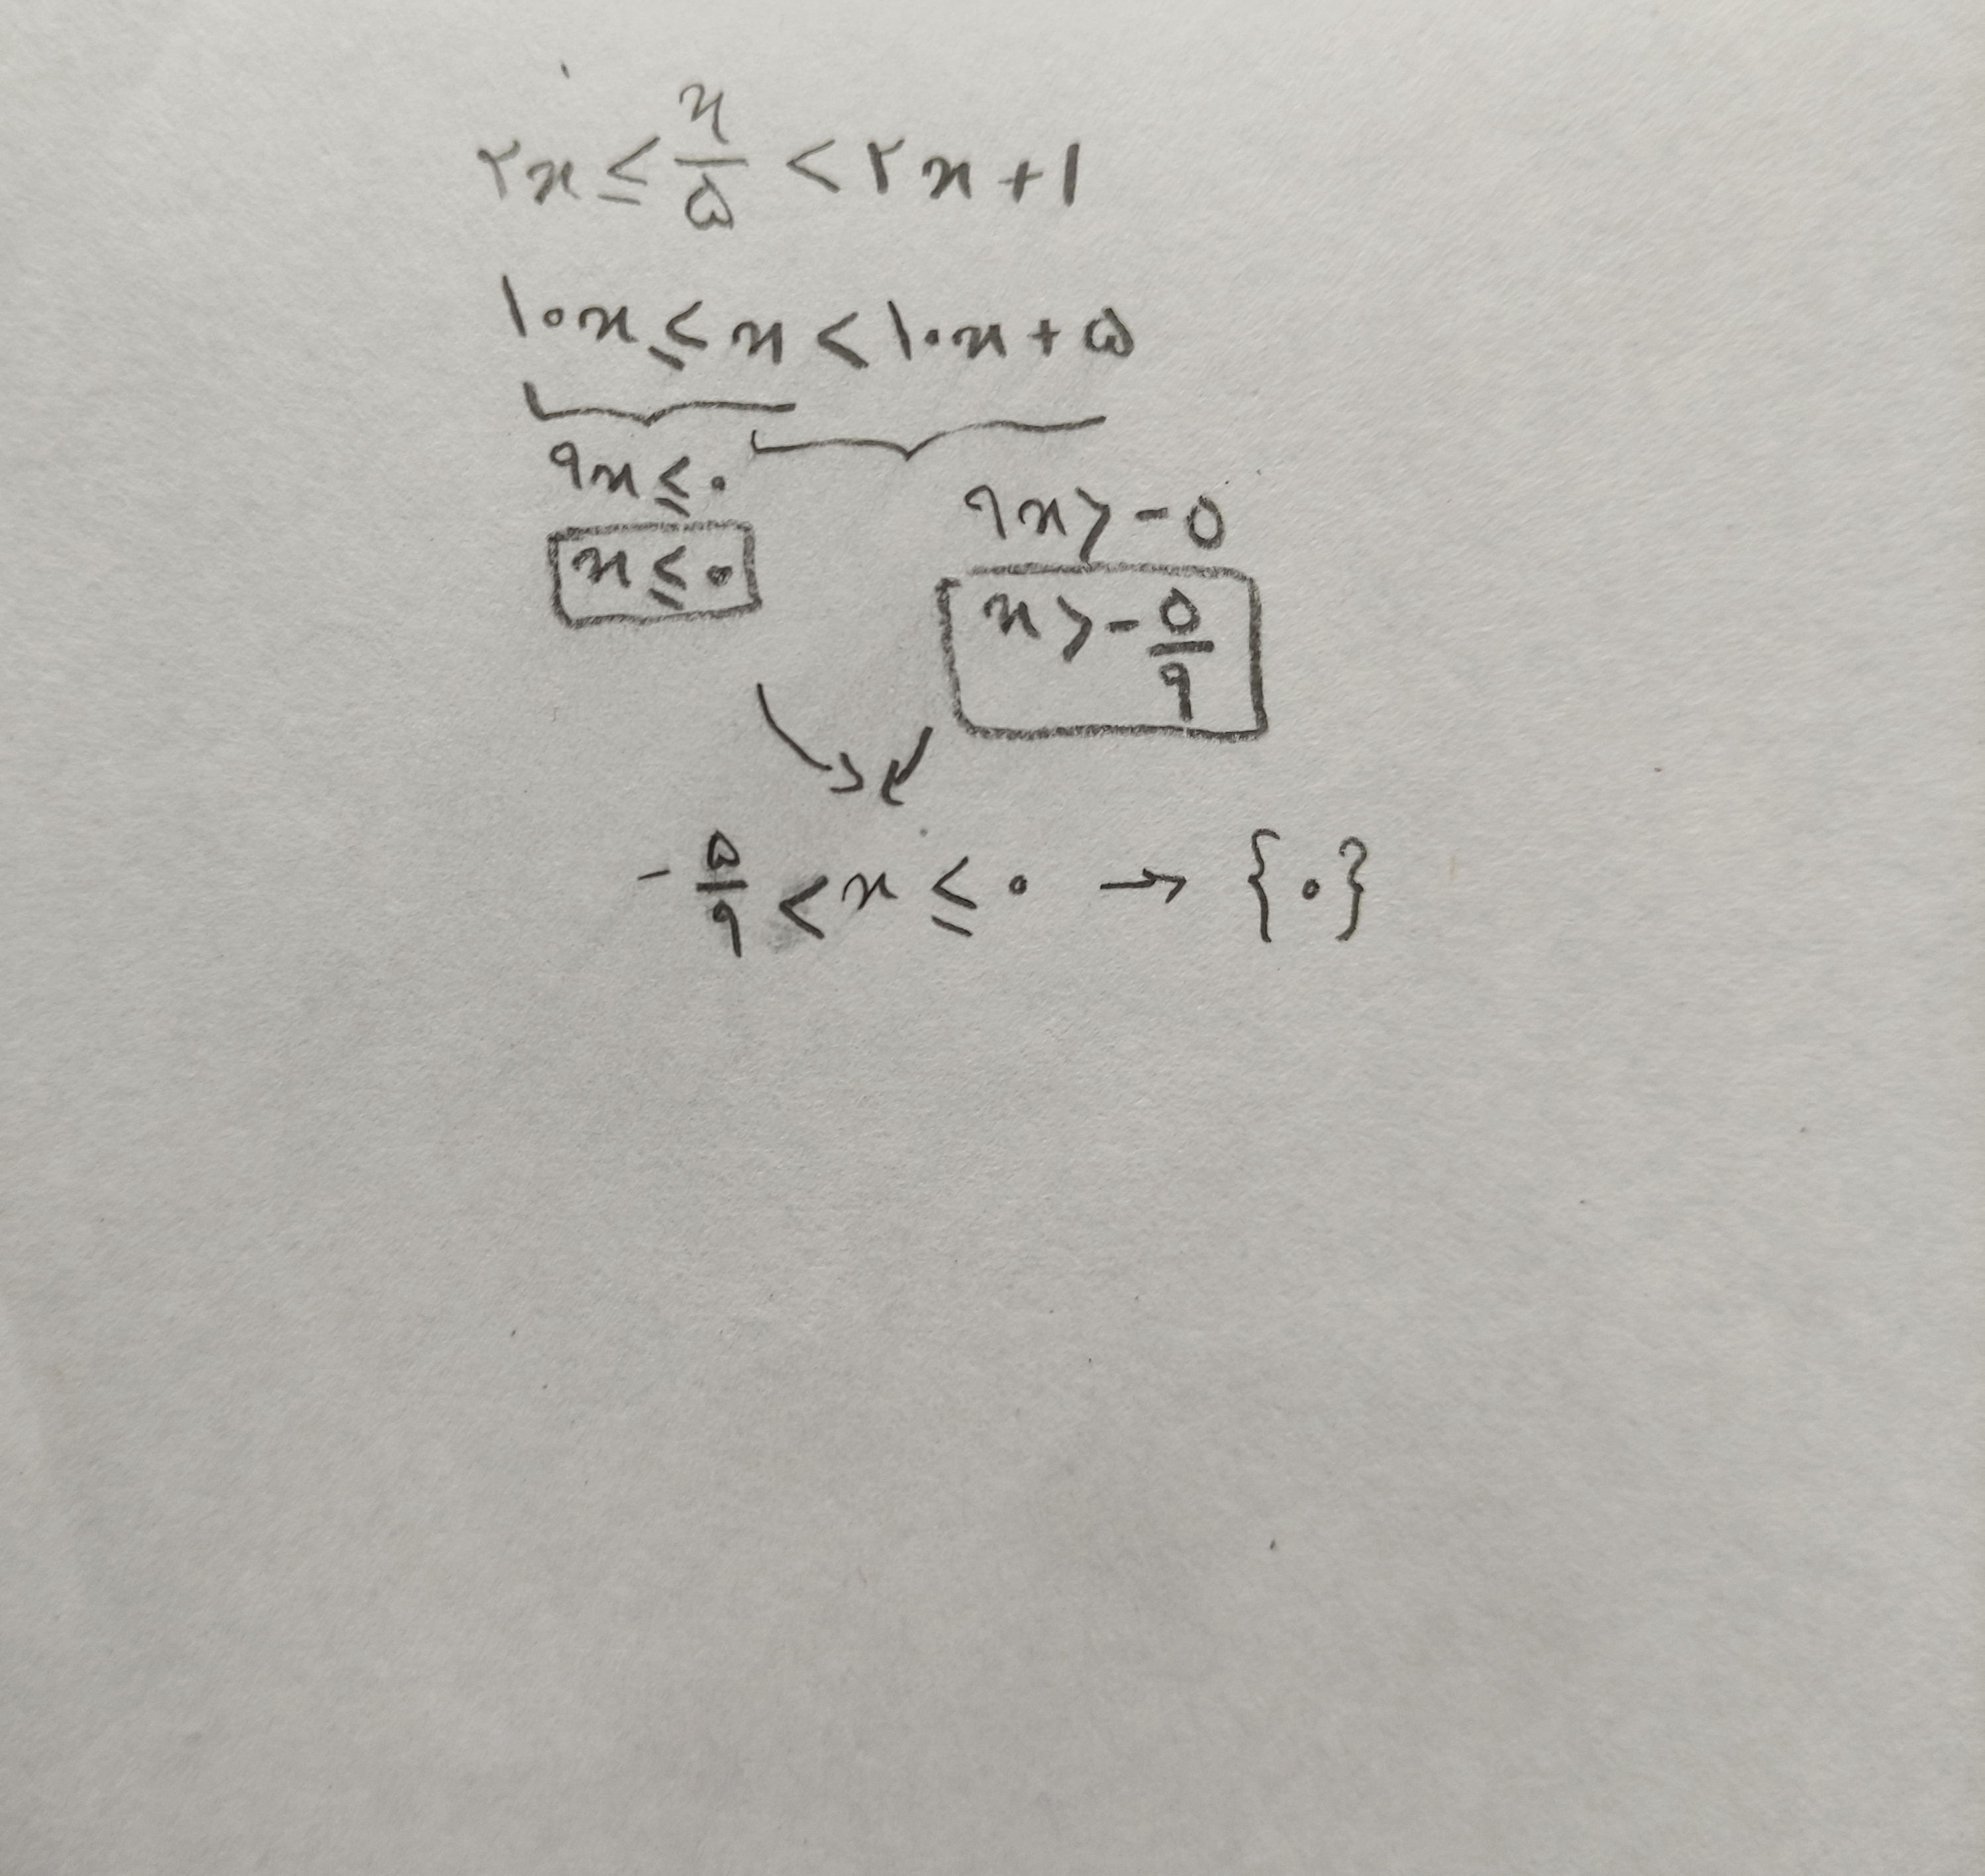 ۲x ≤ x/۵ < ۲x + ۱
۱۰x ≤ x < ۱۰x + ۵
۹x ≤ ۰
۹x > -۵
x ≤ ۰
x > -۵/۹
-۵/۹ < x ≤ ۰ → {۰}